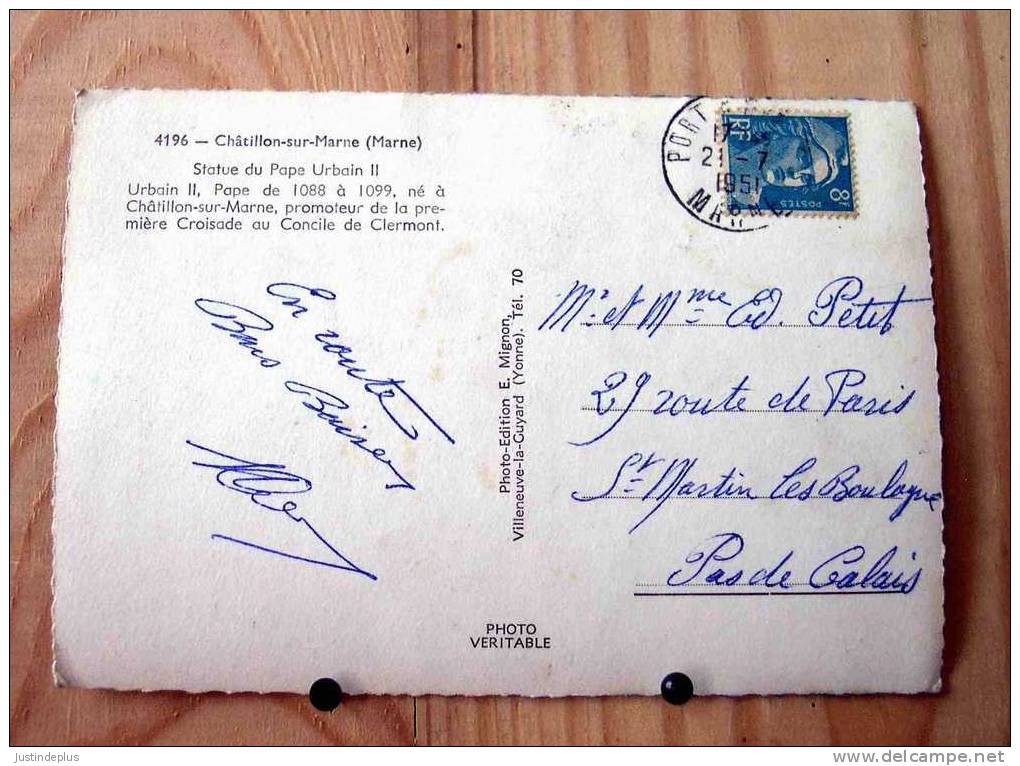 4196 — Châtillon-sur-Marne (Marne)
Statue du Pape Urbain II
Urbain II, Pape de 1088 à 1099, né à
Châtillon-sur-Marne, promoteur de la pre-
mière Croisade au Concile de Clermont.
PORT
21-7
1951
MARNE
RF
8F
POSTES
En route
Bons Baisers
Photo-Edition E. Mignon,
Villeneuve-la-Guyard (Yonne). Tél. 70
Mr et Mme Ed. Petit
29 route de Paris
St Martin les Boulogne
Pas de Calais
PHOTO
VERITABLE
justindeplus
www.delcampe.net